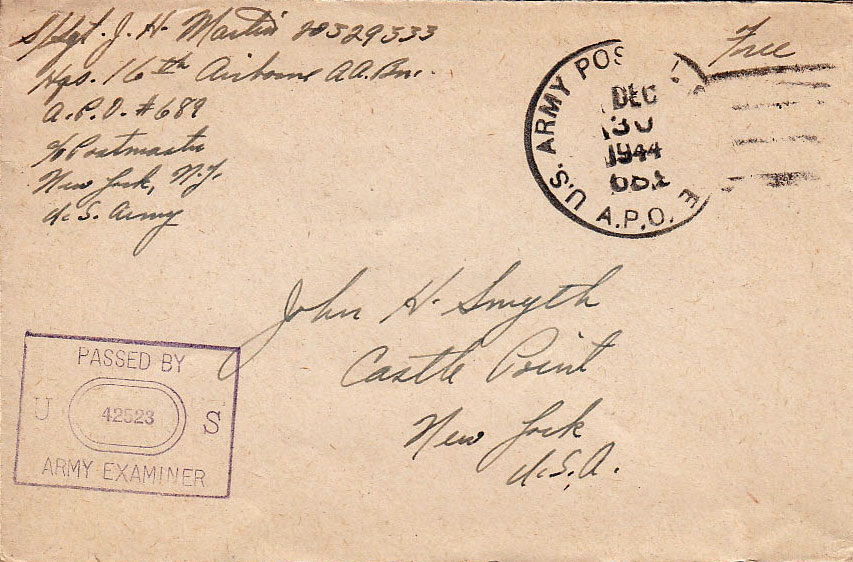 S/Sgt. J. H. Martin 20329533
Hqs. 16th Airborne AA. Bn.
A.P.O. #689
c/o Postmaster
New York, N.Y.
U.S. Army
Free
U.S. ARMY POS
A.P.O.
DEC
30
1944
John H. Smyth
Castle Point
New York
U.S.A.
PASSED BY
U 42523 S
ARMY EXAMINER